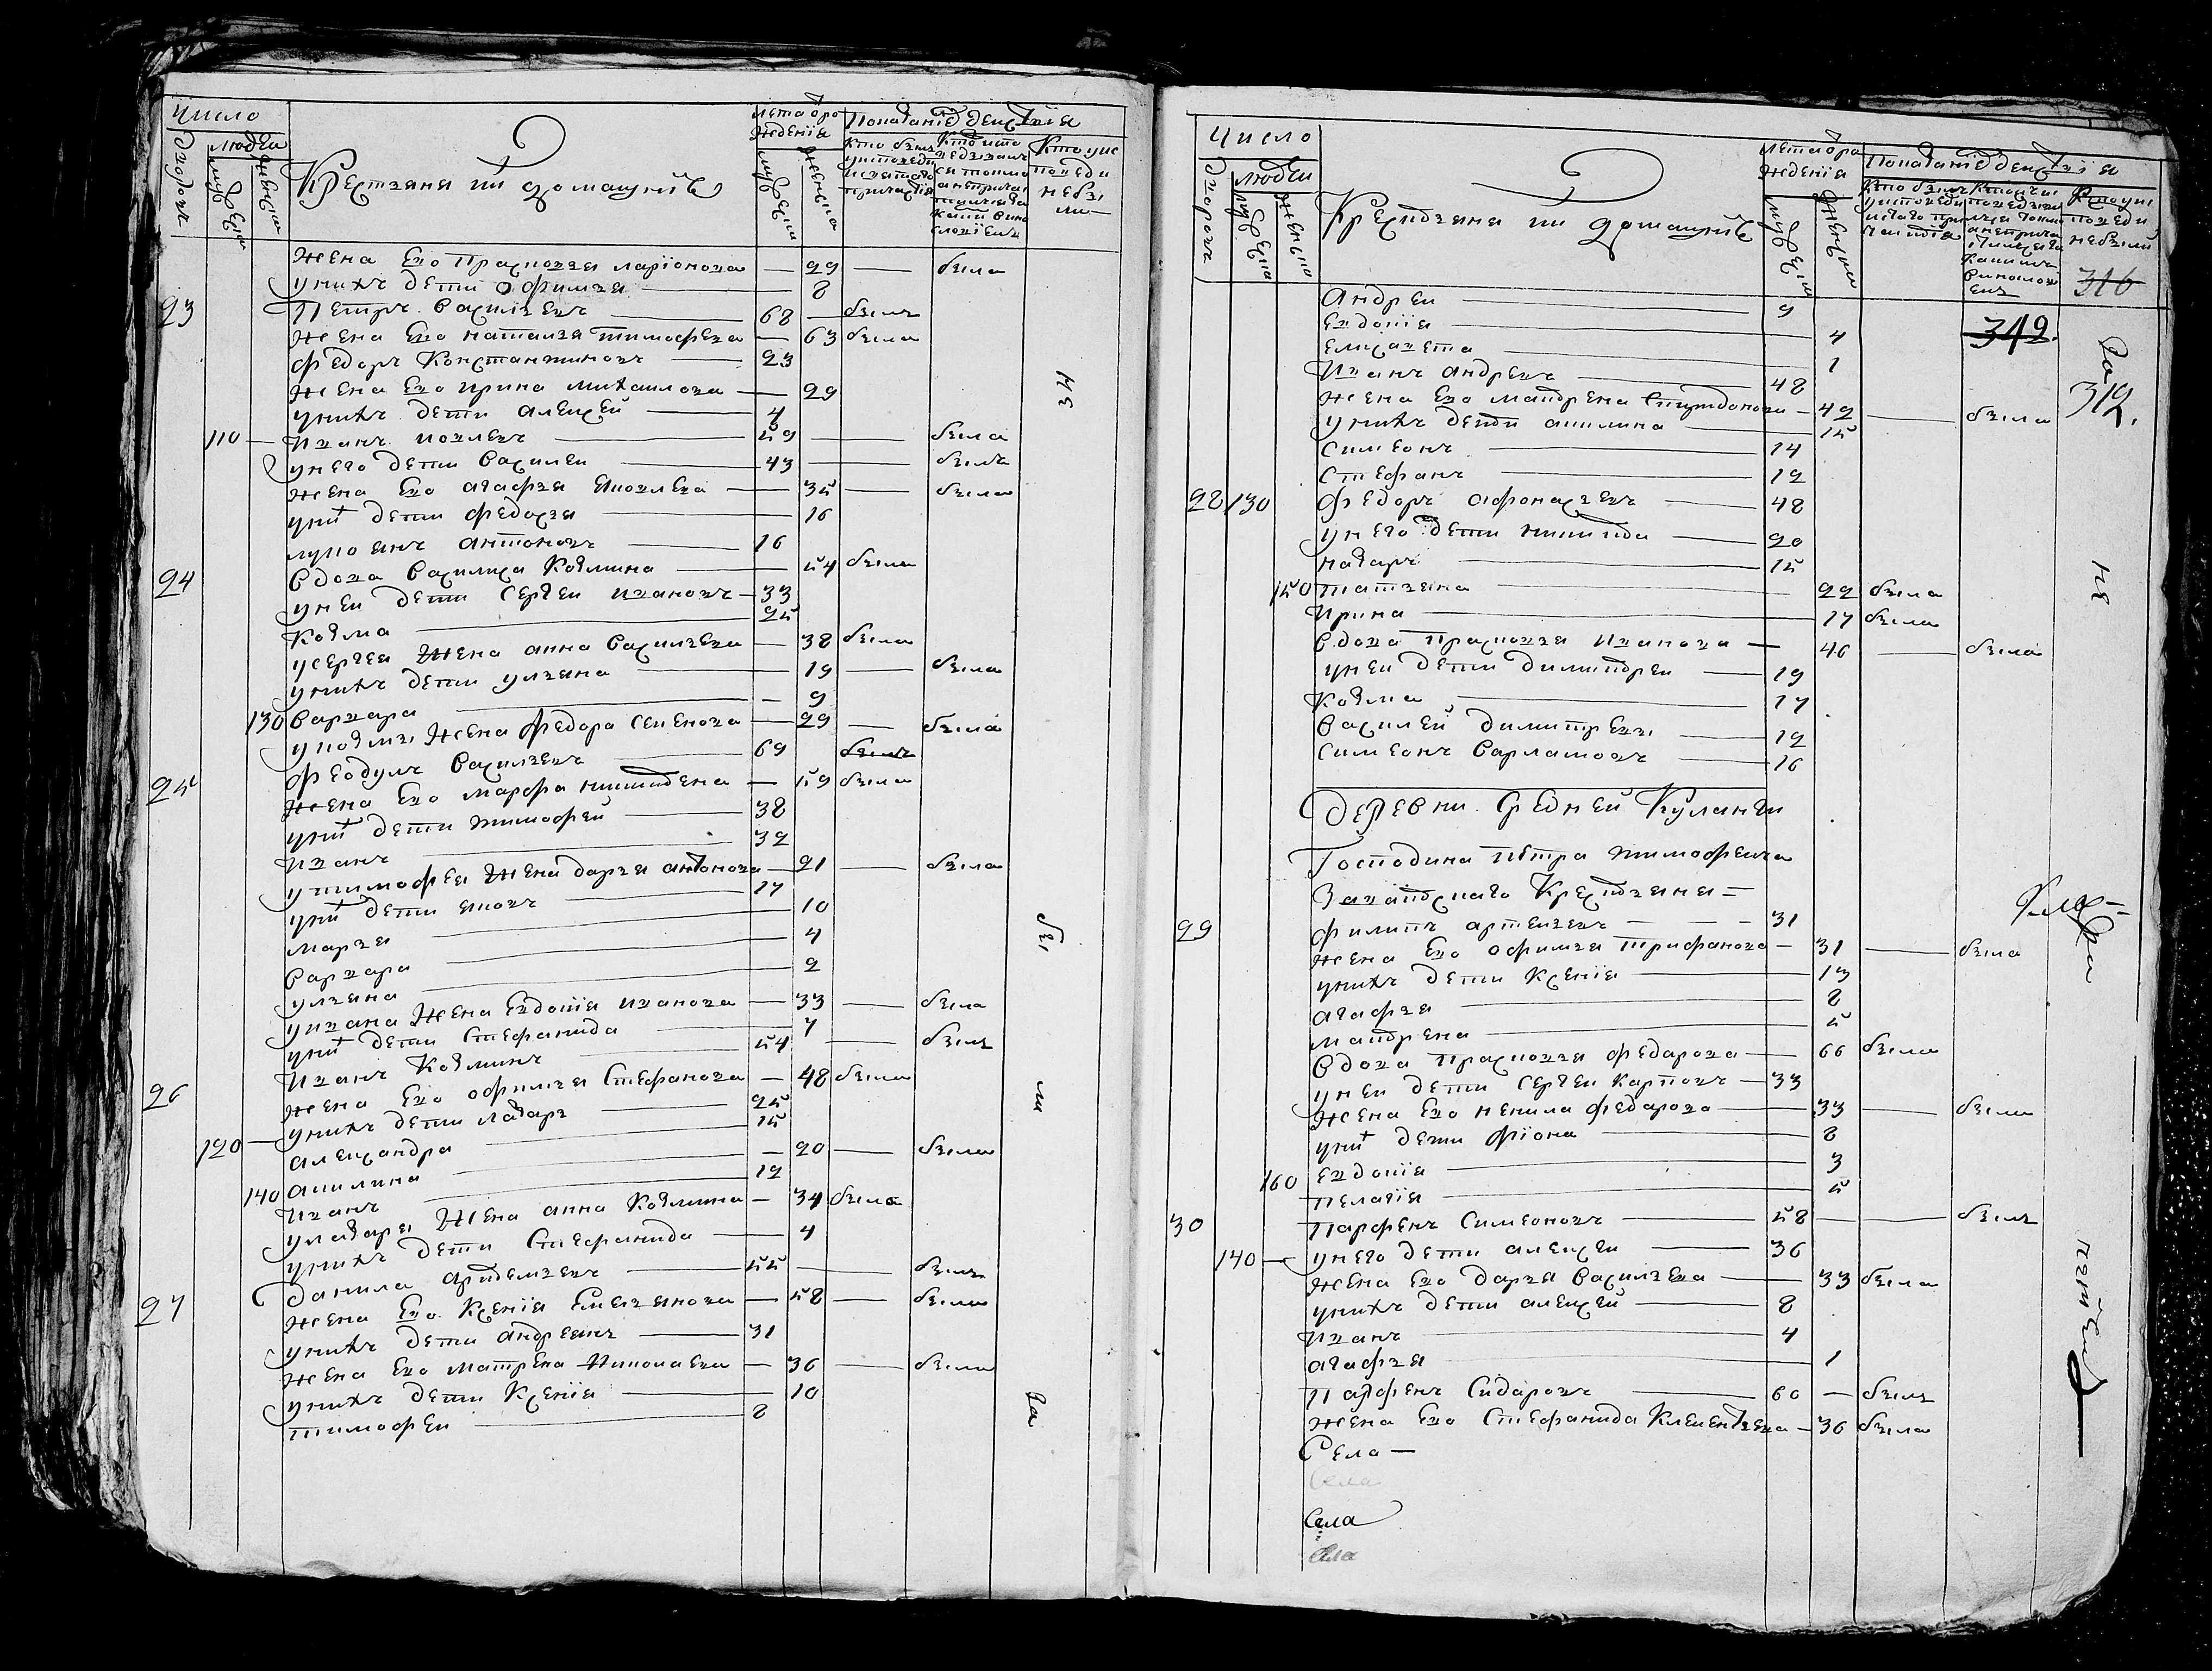 Число
людеи
Дворовъ
мужескъ
женскъ
Крестьяня ии домашнiе
лета о рождения
мужескъ
женска
Показанiе действiя
Кто былъ у исповеди и святого причастiя
Кто исповедывался токмо а не причастился и за каким винословiемъ
Кто у исповеди небыли
Жена его Прасковья ларiонова — 29 — была
у нихъ дети офимья — 8
23 Петръ Василевъ — 68 — былъ
Жена его наталья тимофева — 63 была
Федоръ Константиновъ — 23
Жена его ирина михаилова — 29
у нихъ дети алексей — 4
110 — Иванъ иовлевъ — 59 — была
у него дети василеи — 43 — былъ
жена его агафья яковлева — 35 — была
у них дети федосья — 16
лукоянъ антоновъ — 16
24 вдова василиса Козмина — 54 была
у неи дети Сергеи ивановъ — 33
Козма — 25
у сергея жена анна василева — 38 была
у нихъ дети улияна — 19 — была
130 варвара — 9
у козмы жена федора семенова — 29 — была
25 феодулъ василевъ — 69 былъ
жена его марфа никитина — 59 была
у них дети тимофеи — 38
иванъ — 32
у тимофея жена дарья антонова — 21 — была
у них дети яковъ — 17
марья — 10
варвара — 4
улияна — 2
у ивана жена евдокiя иванова — 33 — была
у них дети Стефанида — 7
26 Иванъ Козминъ — 54 — былъ
жена его офимья Стефанова — 48 была
у нихъ дети лазарь — 25
120 — александра — 15
140 акилина — 20 — была
иванъ — 12
у лазаря жена анна Козмина — 34 была
у нихъ дети Стефанида — 4
27 данила артемьевъ — 55 — былъ
жена его Ксенiя Емельянова — 58 — была
у нихъ дети андреянъ — 31
жена его матрена николаева — 36 — была
у нихъ дети Ксенiя — 10
тимофеи — 8
не
бы
ли
за
Число
людеи
Дворовъ
мужескъ
женскъ
Крестьяня ии домашнiе
лета о рождения
мужескъ
женска
Показанiе действiя
316
342.
312.
андреи — 9
евдокiя — 4
елисавета — 1
иванъ андревъ — 48
жена его матрена Спиридонова — 42 — была
у нихъ дети акилина — 15
симеонъ — 14
стефанъ — 12
28 130 федоръ афонасьевъ — 48
у него дети никита — 20
назаръ — 15
150 татьяна — 22 была
ирина — 17 была
вдова прасковья иванова — 46 — была
у неи дети димитреи — 19
Козма — 17
василеи димитревъ — 12
симеонъ варламовъ — 16
Деревни Средней Куланги
Господина петра тимофеича
Крестьяня —
29 филипъ артемьевъ — 31
жена его офимья трифанова — 31 — была
у нихъ дети Ксенiя — 13
агафья — 8
матрена — 5
вдова прасковья федарова — 66 была
у неи дети сергеи Карповъ — 33
жена его ненила федарова — 33 — была
у них дети фiона — 8
160 евдокiя — 3
пелагiя — 5
30 парфенъ симеоновъ — 58 — былъ
140 — у него дети алексеи — 36
жена его дарья василева — 33 была
у нихъ дети алексеи — 8
иванъ — 4
агафья — 1
парфенъ Сидаровъ — 60 — былъ
жена его Стефанида Клементьева — 36 была
Села —
Села
Села
Села
не